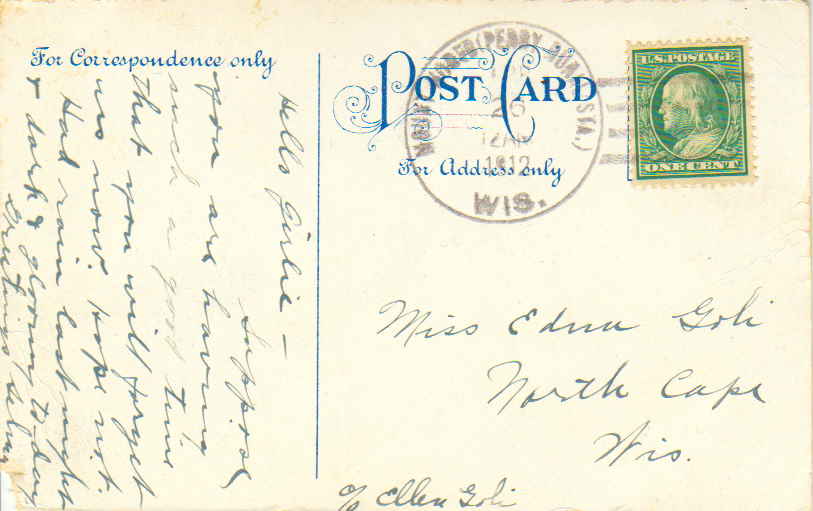 For Correspondence only
Hello Girlie —
Suppose
you are having
such a good time
that you will forget
us now. Hope not.
Had rain last night
& dark & gloomy to-day
Greetings Selma
POST CARD
For Address only
26
1912
WIS.
U.S. POSTAGE
ONE CENT
Miss Edna Goli
North Cape
Wis.
c/o Ellen Goli